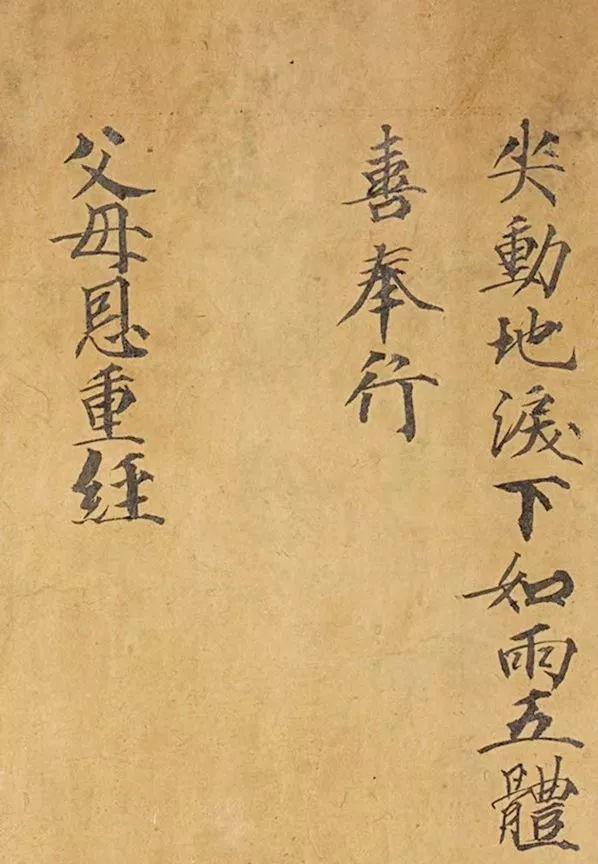 哭動地淚下如雨五體
喜奉行
父母恩重經